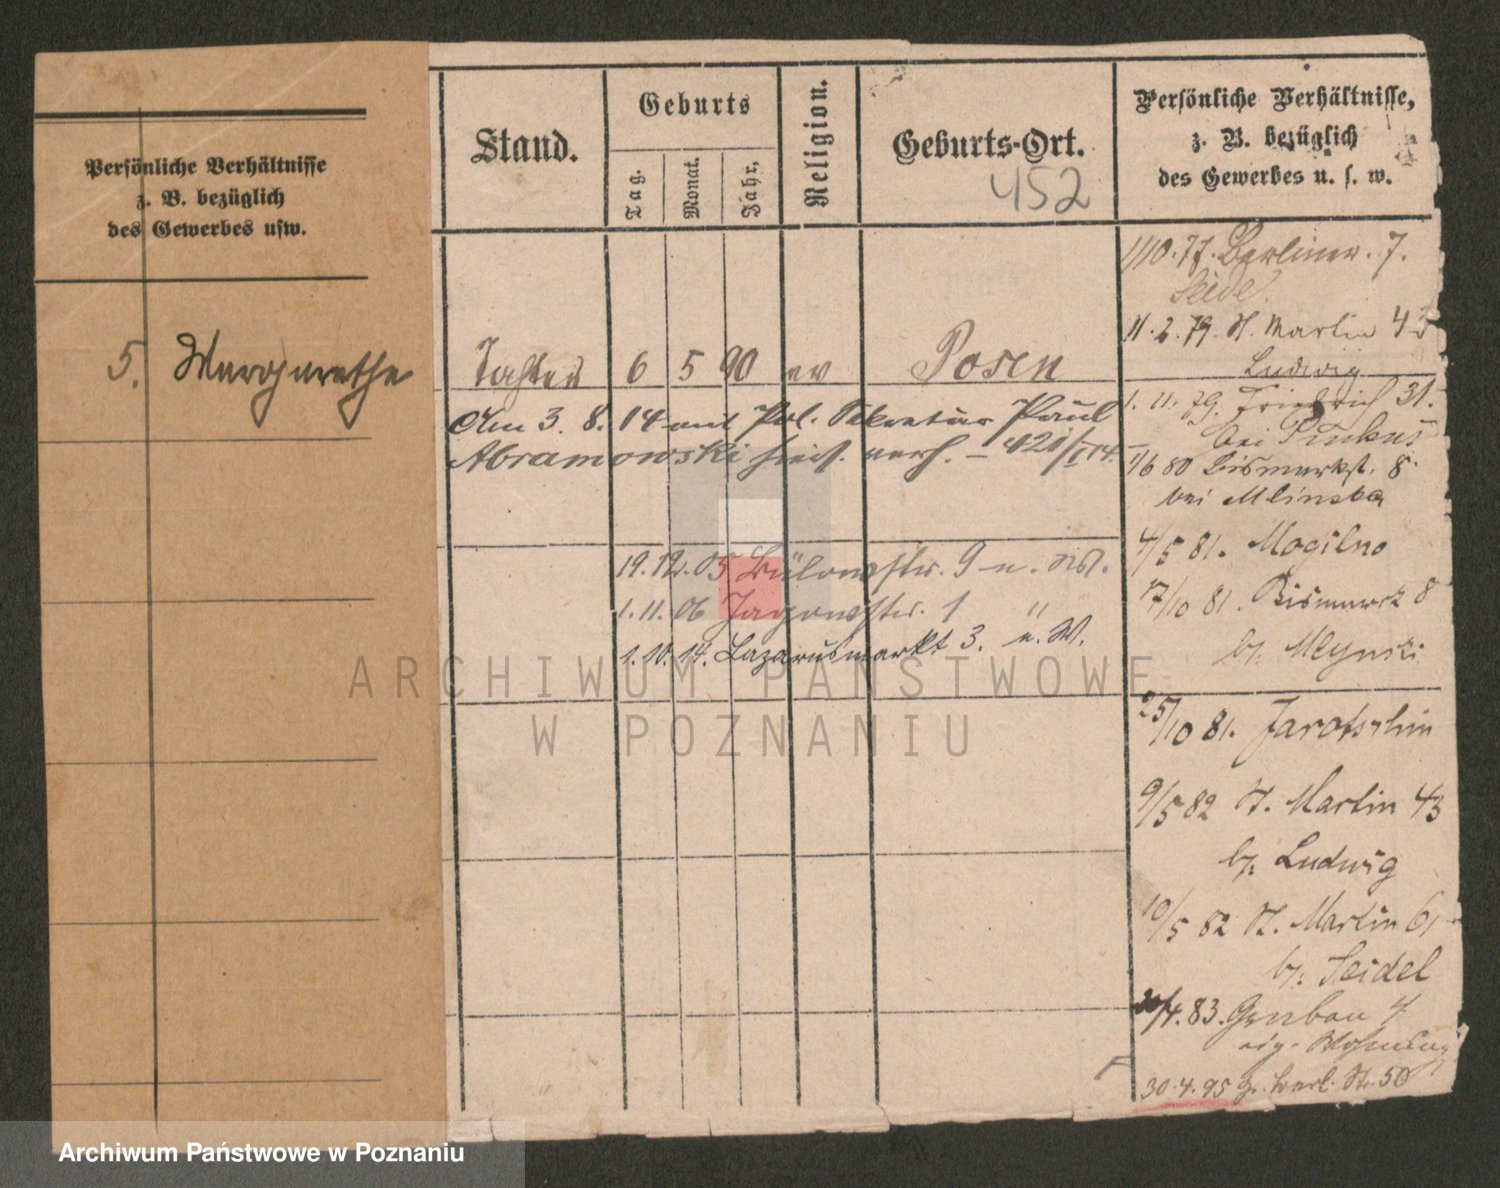 Persönliche Verhältnisse
z. B. bezüglich
des Gewerbes usw.
5. Margarethe
Stand.
Geburts
Tag.
Monat.
Jahr.
Religion.
Geburts-Ort.
452
Persönliche Verhältnisse,
z. B. bezüglich
des Gewerbes u. s. w.
Tochter 6 5 90 ev Posen
Am 3. 8. 14 mit Pol. Sekretär Paul
Abramowski hies. verh. – 421/I 14.
19. 12. 05 Bülowstr. 9 u. W.
1. 11. 06 Jagowstr. 1 "
1. 10. 14. Lazarusmarkt 3. u. W.
1/10. 77. Berliner. 7.
Seidel
11. 2. 79. St. Martin 43
Ludwig
1. 11. 79. Friedrich 31.
bei Pinkus
1/6 80 Bismarckst. 8.
bei Mlinska
4/5 81. Mogilno
17/10 81. Bismarck 8
bj. Mlynski
25/10 81. Jarotschin
9/5 82 St. Martin 43
bj. Ludwig
10/5 82 St. Martin 61
bj. Seidel
/4. 83. Grabau 4
eig. Wohnung
30. 4. 95 Gr. Berl. Str. 50
ARCHIWUM PAŃSTWOWE
W POZNANIU
Archiwum Państwowe w Poznaniu